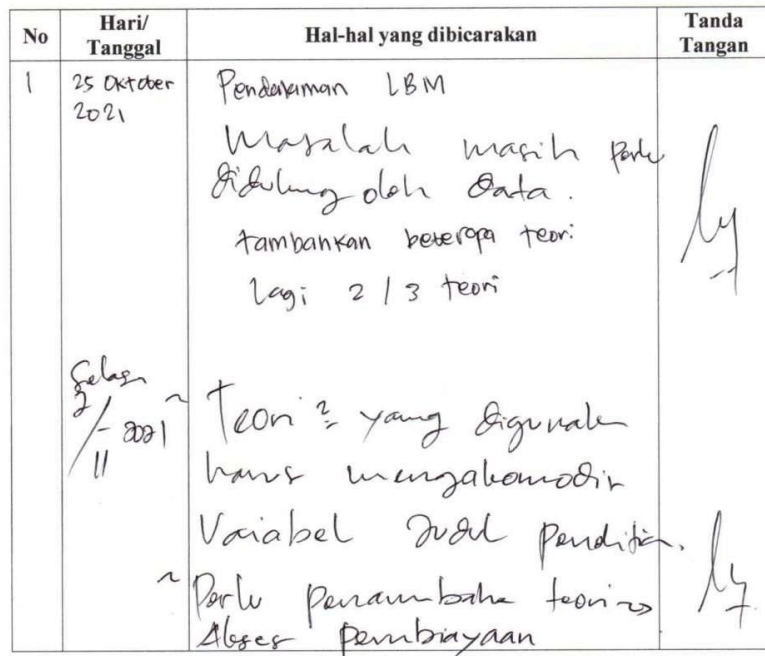 No
Hari/
Tanggal
Hal-hal yang dibicarakan
Tanda
Tangan
1
25 Oktober
2021
Pendalaman LBM
Masalah masih perlu
didukung oleh data.
tambahkan beberapa teori
lagi 2/3 teori
Selasa
2/11 - 2021
~ Teori² yang digunakan
harus mengakomodir
Variabel Judul penelitian.
~ Perlu penambahan teori
Akses pembiayaan